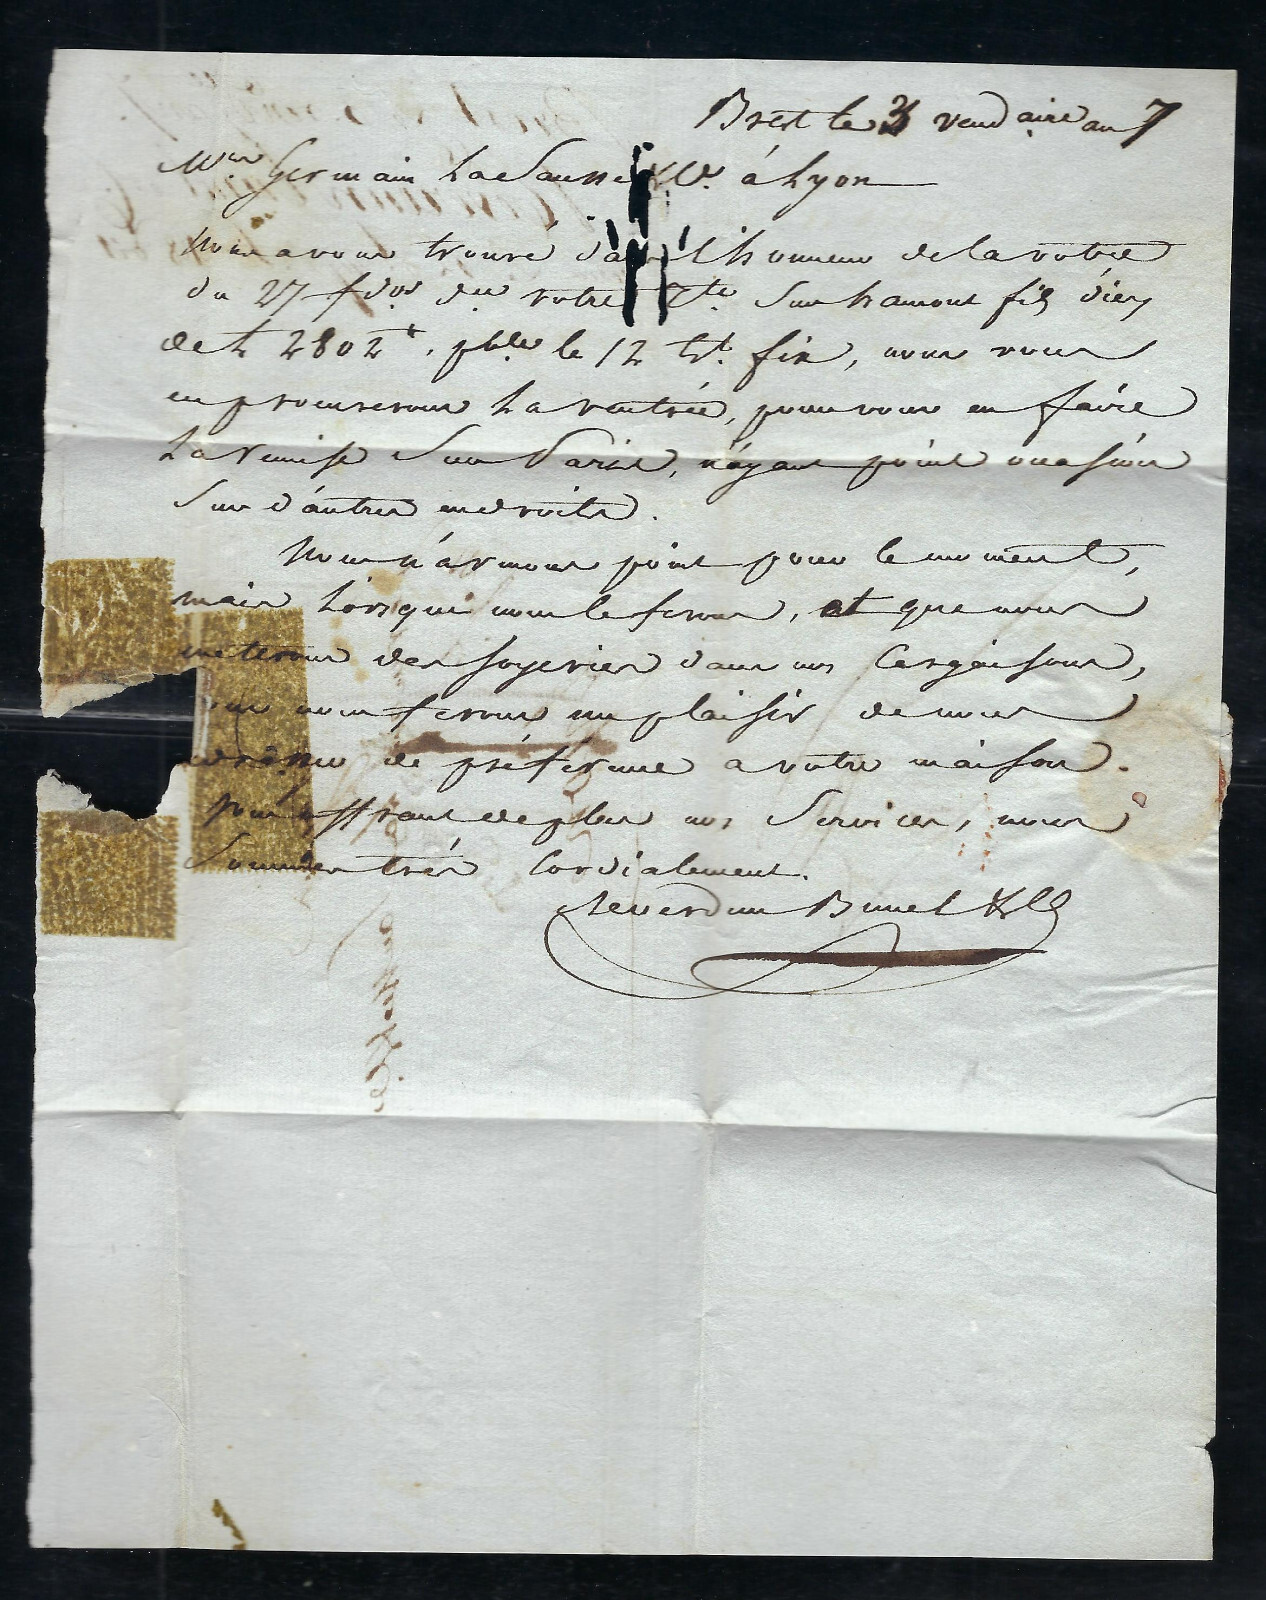 Brest le 3 vendaire an 7
Mrs Germain La Sausse & Ce. à Lyon
Nous avons trouvé dans l'honneur de la votre
du 27 fdor votre Tte Sur hamont fils d'icy
de L 2802 t. pble le 12 bre. fix, nous vous
en procurerons La rentrée, pour vous en faire
La remise Sur Paris, n'ayant point occasion
Sur d'autres endroits.
Nous n'armons point pour le moment,
mais Lorsque nous le ferons, et que nous
metterons des soyeries dans nos Cargaisons,
nous ferons un plaisir de nous
de préférence a votre maison.
offrant de plus nos Services, nous
Sommes très Cordialement.
Reverdun Bunel &